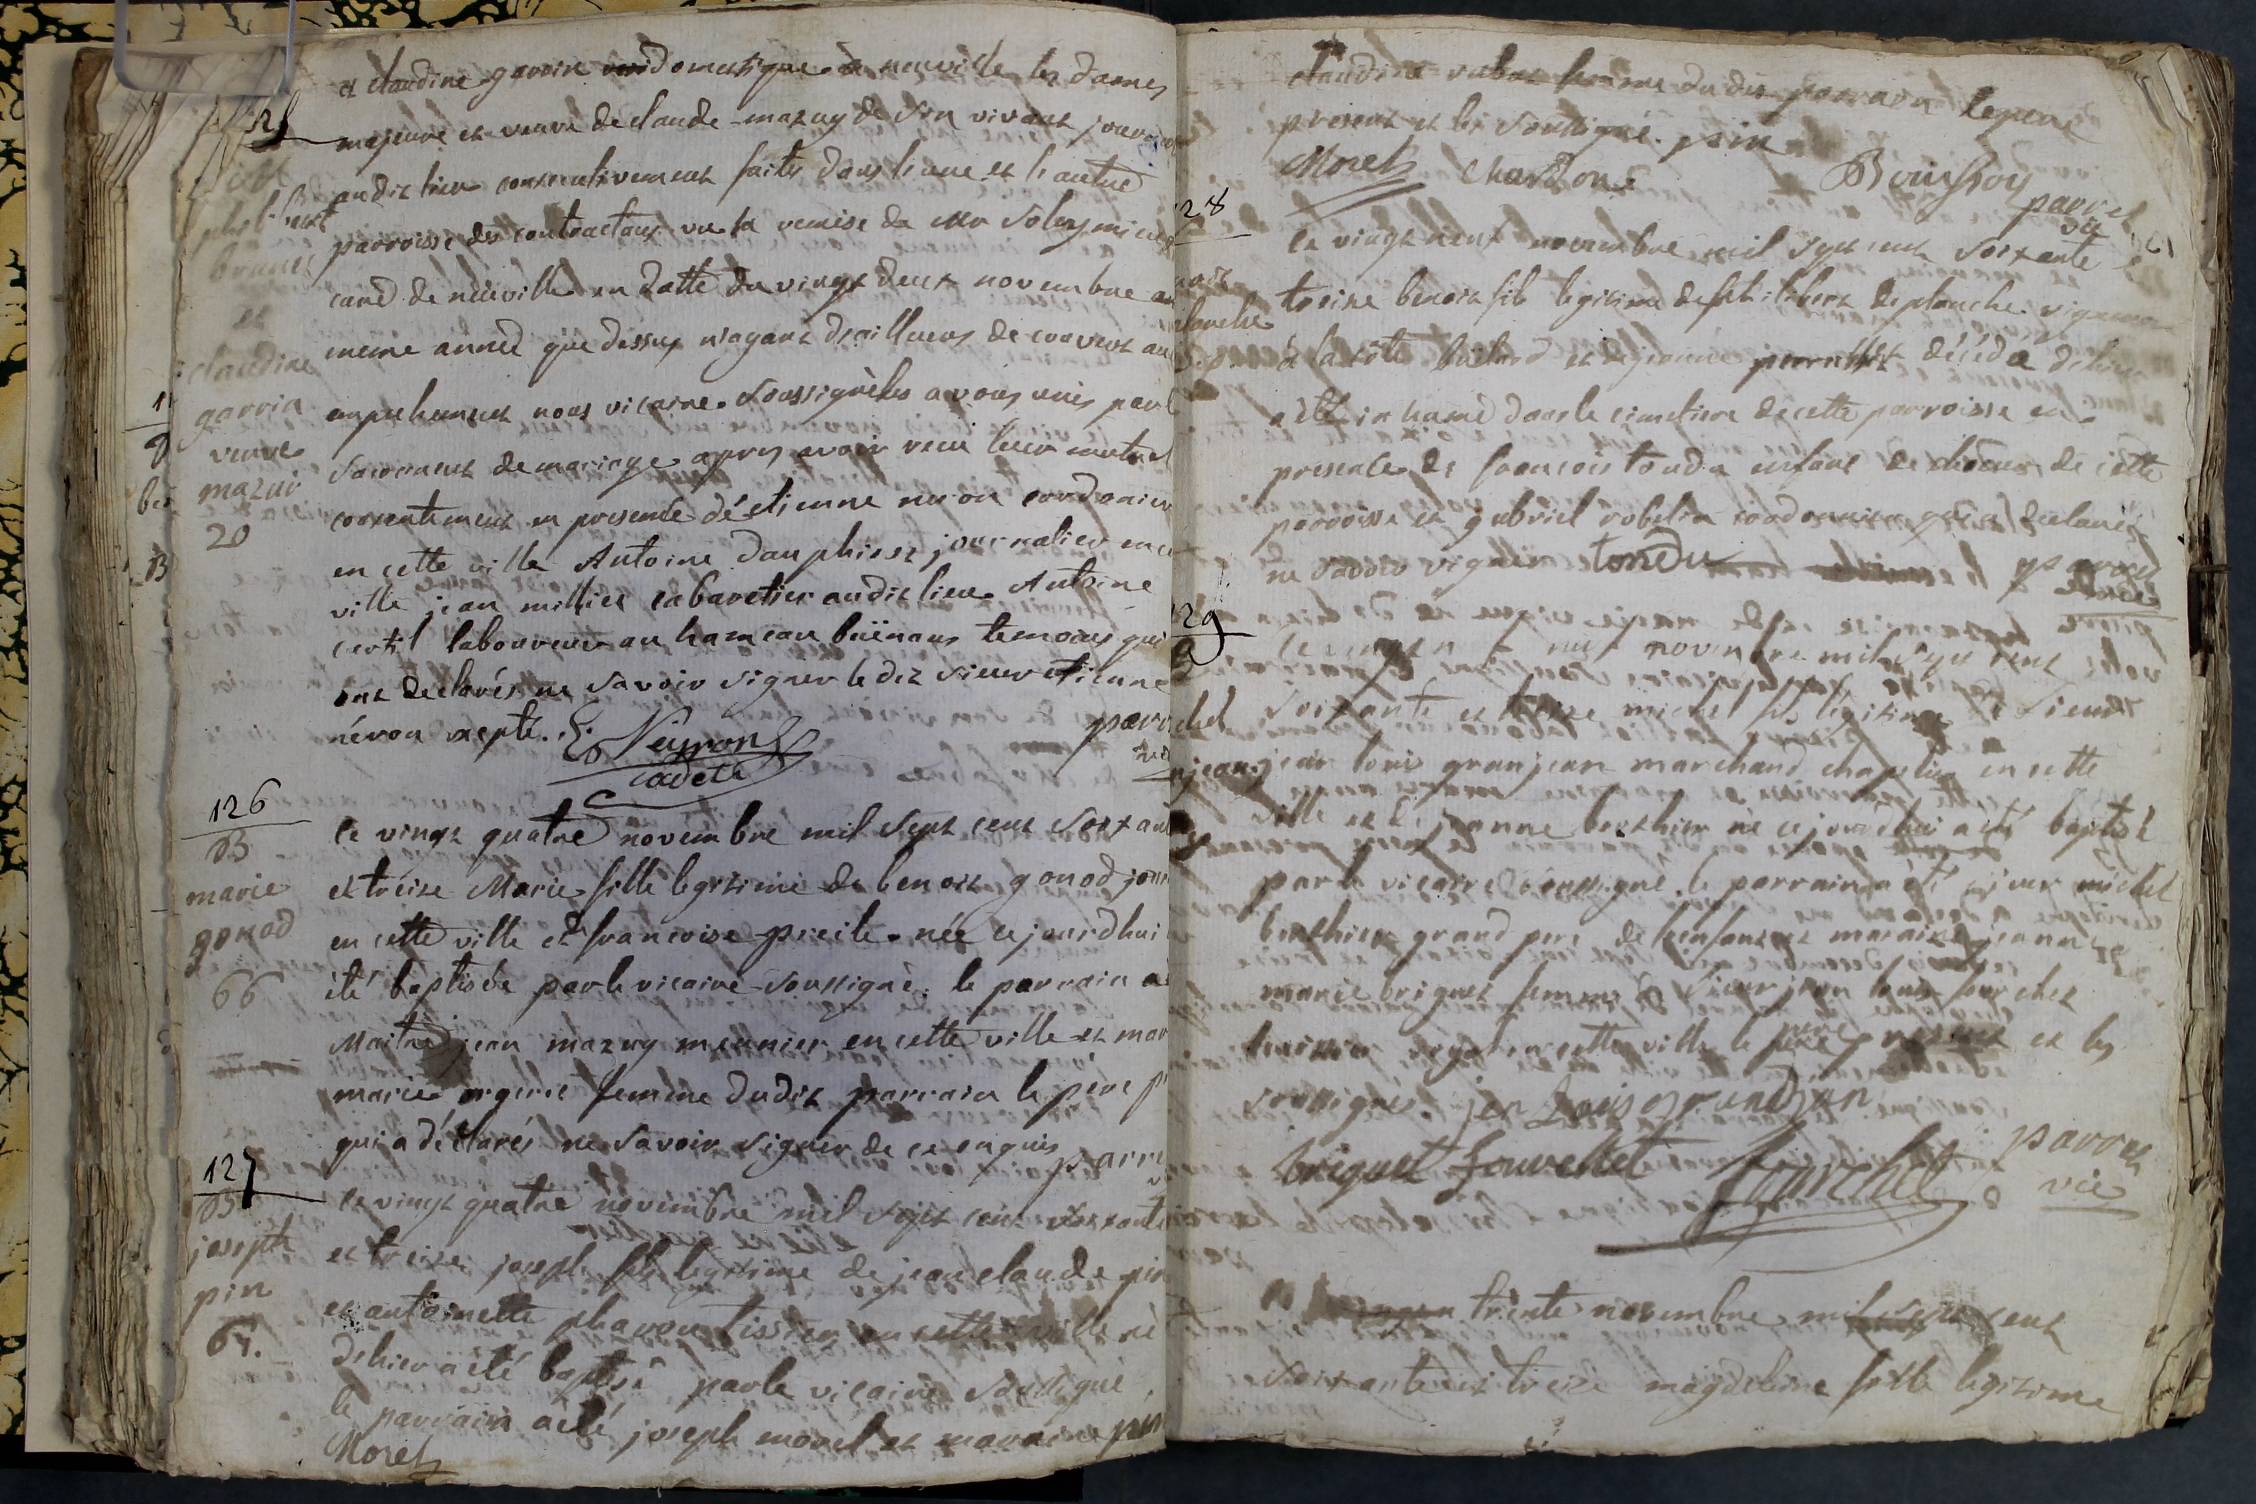 et claudine gavoin domestique à neuville les dames
majeure et veuve de claude mazuy de son vivant
audit lieu consecutivement faites dans l'une et l'autre
parroisse des contractans vu la remise de mr
curé de neuville en datte du vingt deux novembre
meme année que dessus n'ayant d'ailleurs decouvert
empechement nous vicaire soussignés les avons unis par
sacrement de mariage apres avoir reçu leur mutuel
consentement en presence d'étienne neron cordonnier
en cette ville Antoine dauphin journalier en
ville jean millier cabaretier audit lieu Antoine
curtil laboureur au hameau temoins qui
ont declarés ne savoir signer le dit sieur étienne
néron excepté. E. Neyron
cadet
parro
philibert
et
claudine
gavoin
veuve
mazui
20
126
B
marie
gonod
66
le vingt quatre novembre mil sept cent soixan
et treize Marie fille legitime de benoit gonod jour
en cette ville et francoise née cejourdhui
été baptisée par le vicaire soussigné. le parrain a
Maitre jean mazuy meunier en cette ville et mar
marie femme dudit parrain le père p
qui a déclarés ne savoir signer de ce enquis
parro
127
B
joseph
pin
67.
le vingt quatre novembre mil sept cent soixante
et treize joseph fils legitime de jean claude pin
et antoinette tissier en cette ville né
d'hier a été baptisé par le vicaire soussigné
le parrain a été joseph morel et maraine
Morel
claudine femme dudit parrain le pere
present et les soussigné. pin
Morel Chardon Bouissoy
parret
vic
128
le vingt neuf novembre mil sept cent soixante et
treize benoit fils legitime de philibert deplanche vigneron
à la côte et de jeanne décédé d'hier
a été inhumé dans le cimetiere de cette parroisse en
presence de francois tondu enfant de choeur de cette
parroisse et gabriel robelin cordonnier qui a declaré
ne savoir signer tondu
parret
129
B
le vingt neuf novembre mil sept cent
soixante et treize michel fils legitime de sieur
jean louis granjean marchand chapelier en cette
ville et de jeanne berthier né cejourdhui a été baptisé
par le vicaire soussigné. le parrain a été sieur michel
berthier grand pere de l'enfant et maraine jeanne
marie briguet femme de sieur jean louis fourchet
huissier royal en cette ville le pere present et les
soussignés. jean Louis grandjan
briguet fourchet fourchet
parret
vic
le trente novembre mil sept cent
soixante et treize magdeleine fille legitime